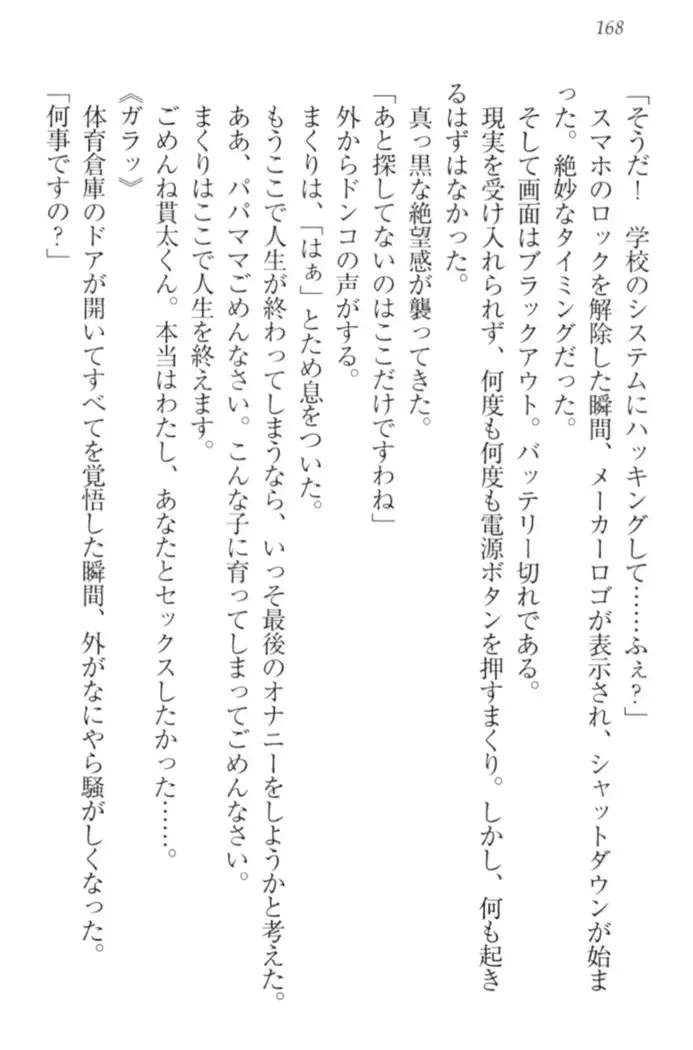 168
「そうだ！　学校のシステムにハッキングして……ふぇ？」
スマホのロックを解除した瞬間、メーカーロゴが表示され、シャットダウンが始ま
った。絶妙なタイミングだった。
そして画面はブラックアウト。バッテリー切れである。
現実を受け入れられず、何度も何度も電源ボタンを押すまくり。しかし、何も起き
るはずはなかった。
真っ黒な絶望感が襲ってきた。
「あと探してないのはここだけですわね」
外からドンコの声がする。
まくりは、「はぁ」とため息をついた。
もうここで人生が終わってしまうなら、いっそ最後のオナニーをしようかと考えた。
ああ、パパママごめんなさい。こんな子に育ってしまってごめんなさい。
まくりはここで人生を終えます。
ごめんね貫太くん。本当はわたし、あなたとセックスしたかった……。
《ガラッ》
体育倉庫のドアが開いてすべてを覚悟した瞬間、外がなにやら騒がしくなった。
「何事ですの？」